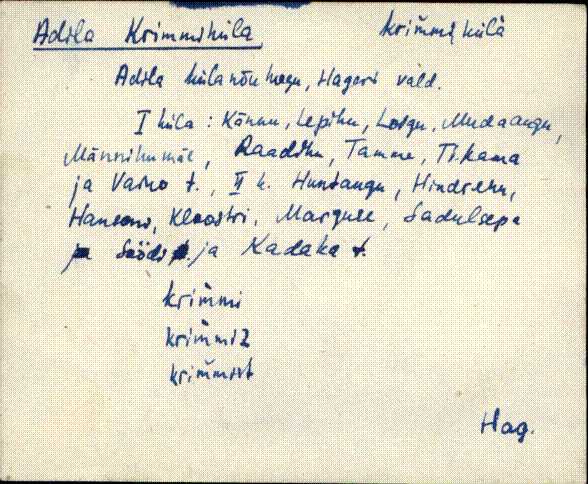 Adila Krimmiküla krim̆mi külä
Adila külanõukogu, Hageri vald.
I küla : Kännu, Lepiku, Lorgu, Mudaaugu,
Männikumäe, Raadiku, Tamme, Tikama
ja Vaino t., II k. Huntaugu, Hindreku,
Hansona, Kloostri, Marguse, Sadulsepa
Söödi ja Kadaka t.
krim̆mi
krim̆miz
krim̆mist
Hag.